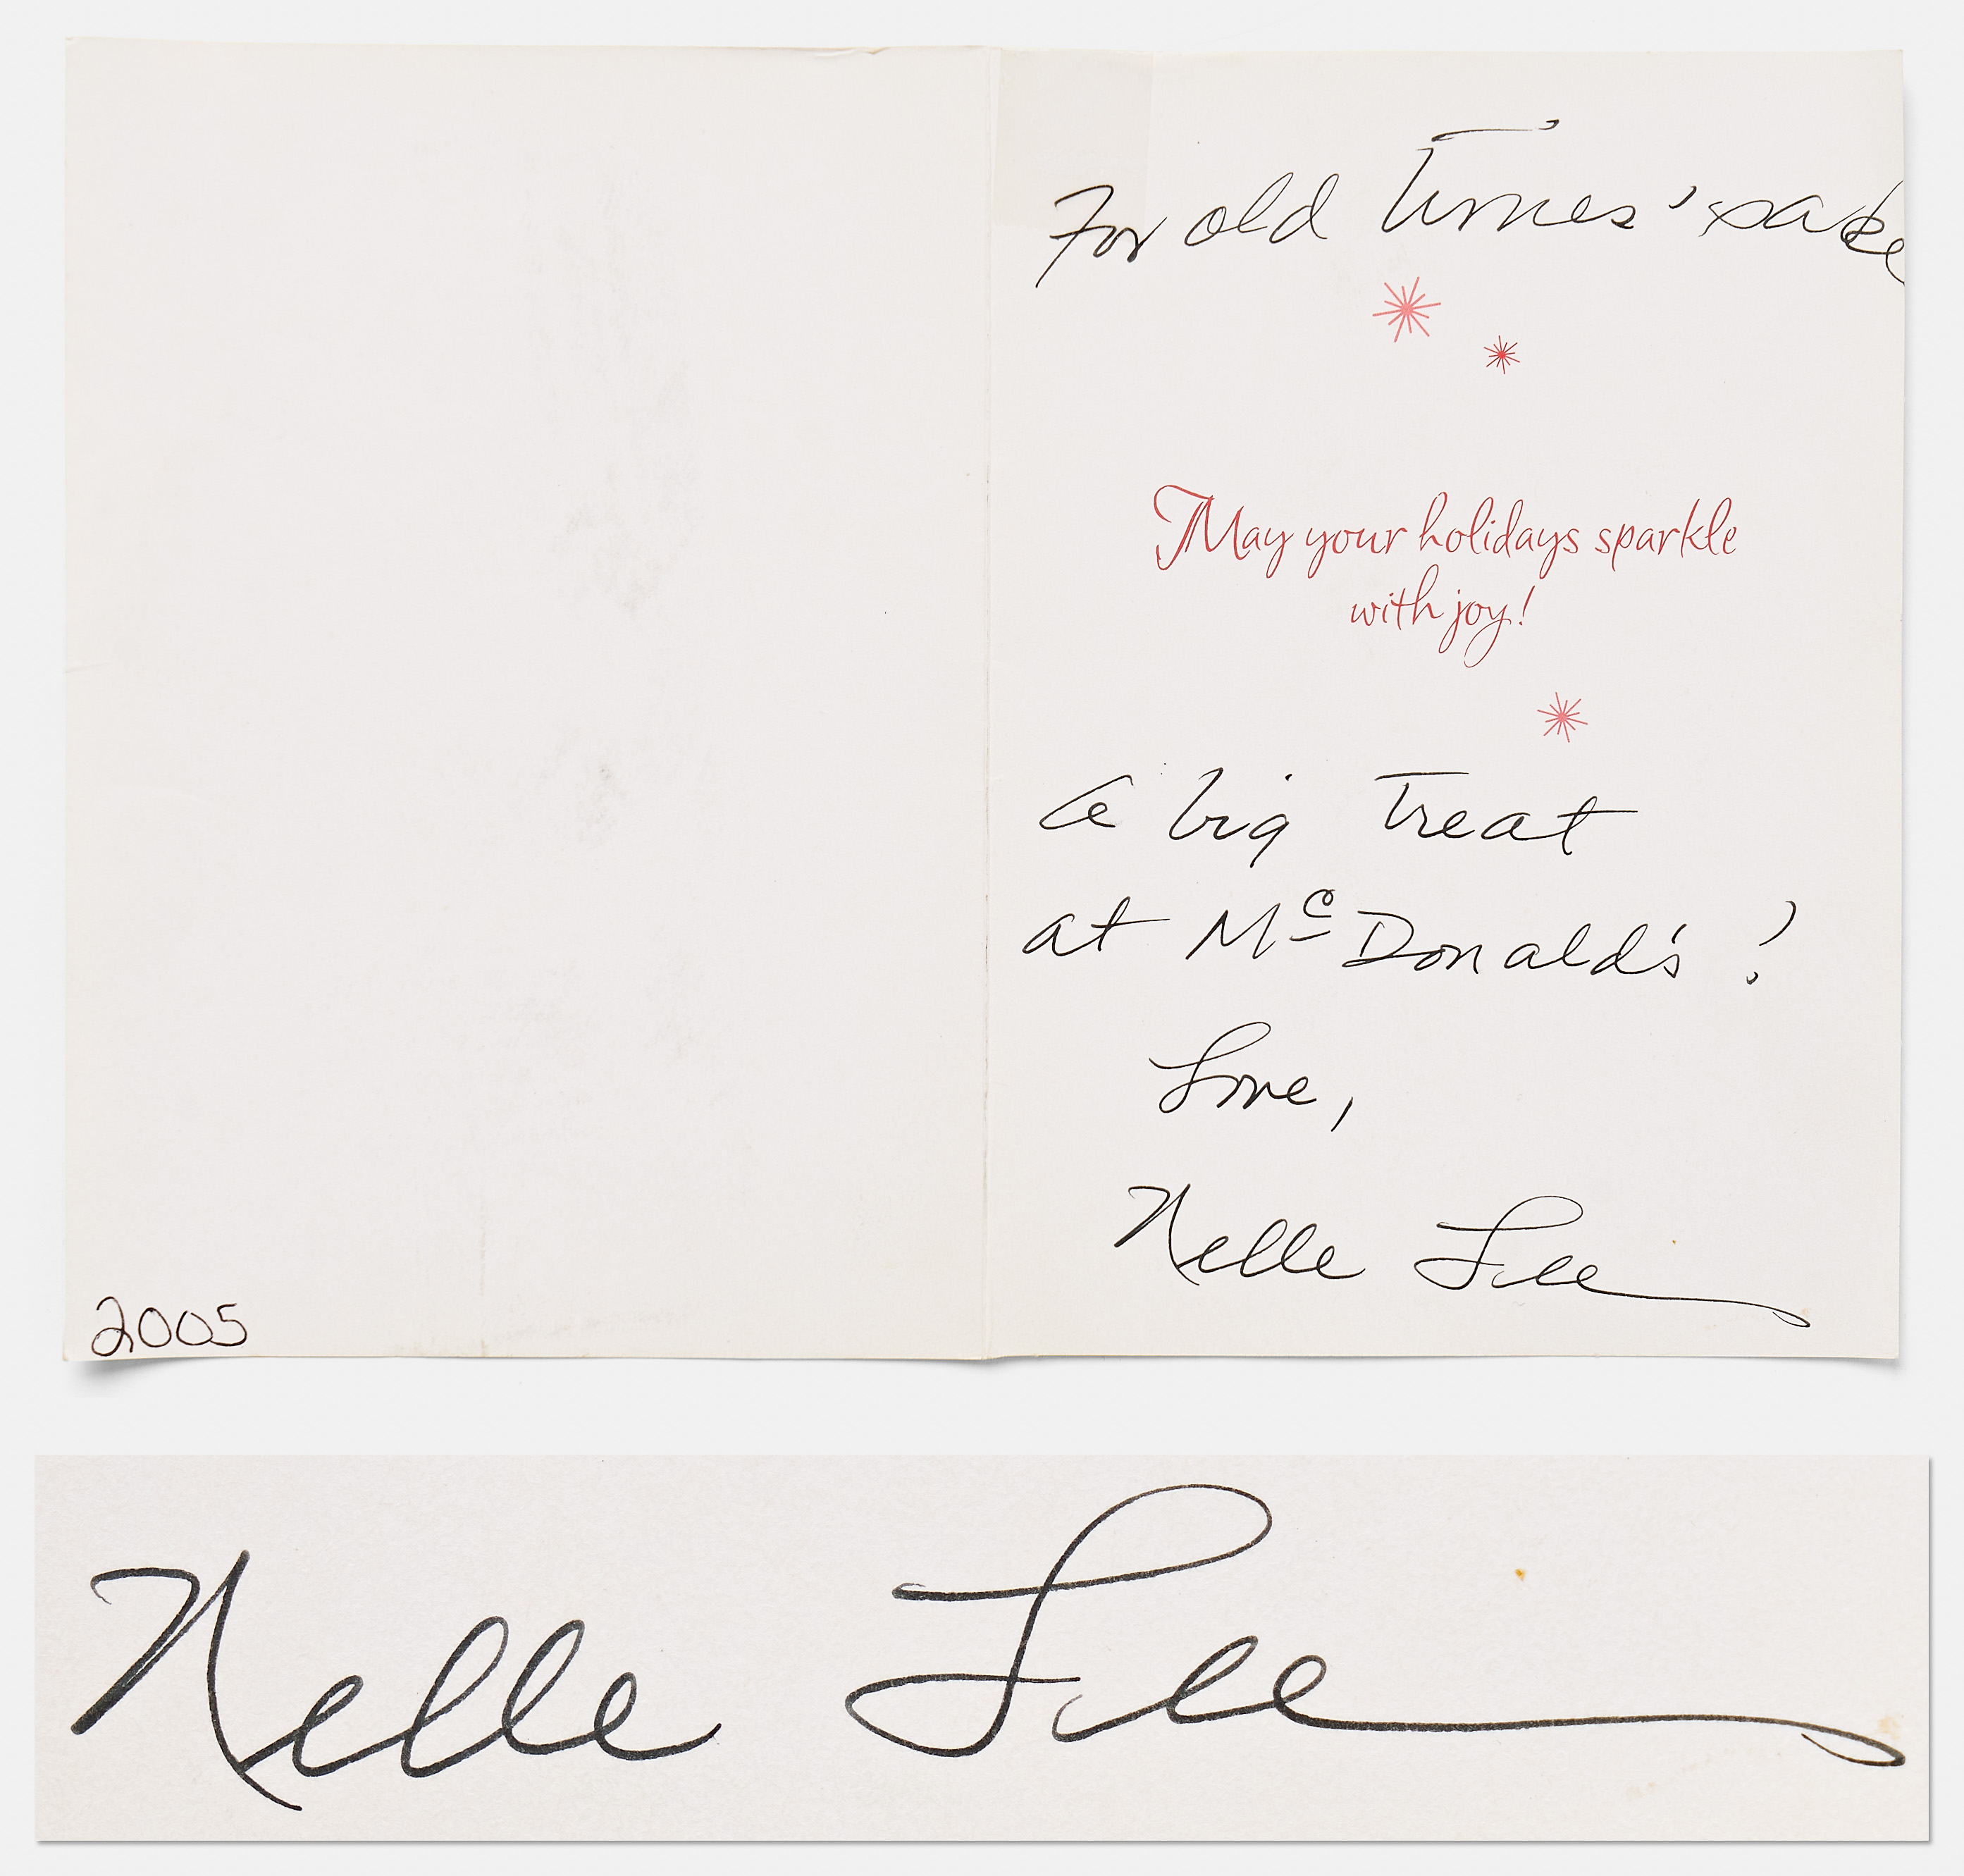 For old Times' sake
May your holidays sparkle
with joy!
A big Treat
at McDonald's!
Love,
Nelle Lee
2005
Nelle Lee